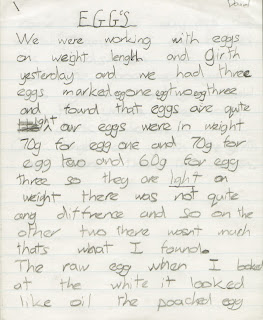 David
EGG'S
We were working with eggs
on weight length and girth
yesterday and we had three
eggs marked egg one egg two egg three
and found that eggs are quite
light our eggs were in weight
70g for egg one and 70g for
egg two and 60g for egg
three so they are light on
weight there was not quite
any diffrence and so on the
other two there wasnt much
thats what I found.
The raw egg when I looked
at the white it looked
like oil the poached egg